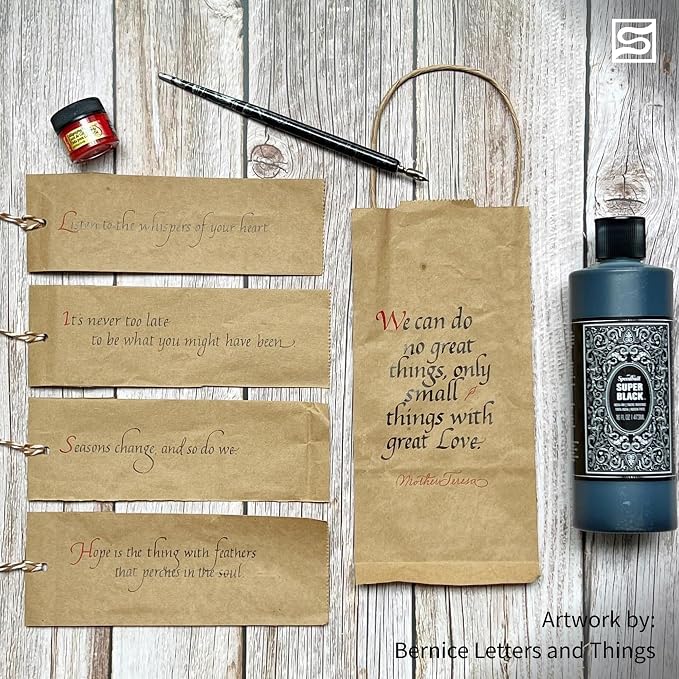 Listen to the whispers of your heart
It's never too late
to be what you might have been
Seasons change, and so do we
Hope is the thing with feathers
that perches in the soul
We can do
no great
things, only
small
things with
great Love.
Mother Teresa
Speedball
SUPER
BLACK
16 FL OZ | 473ML
Artwork by:
Bernice Letters and Things